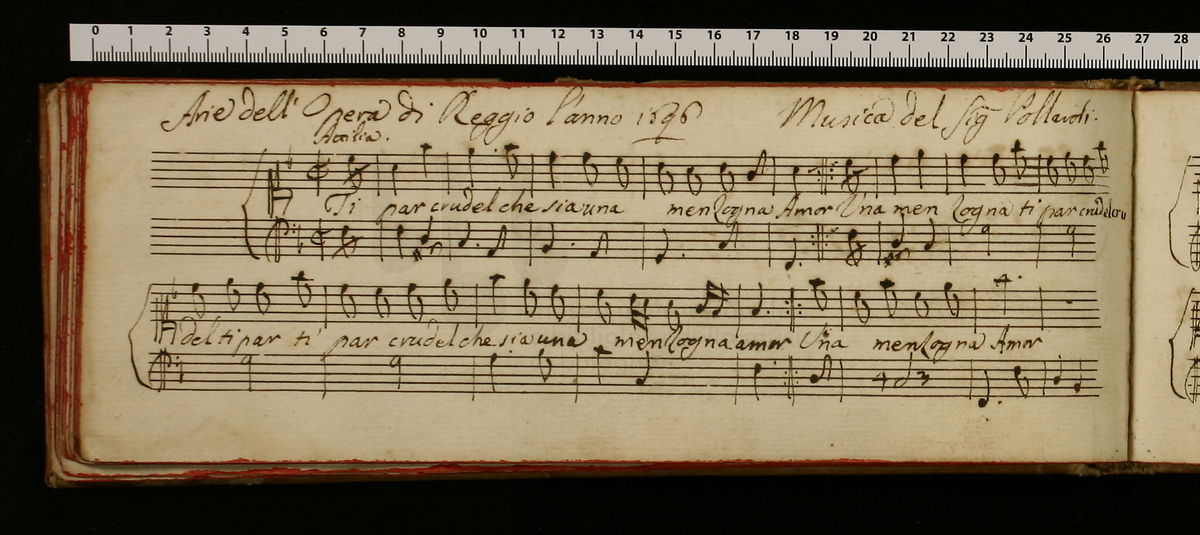 0 1 2 3 4 5 6 7 8 9 10 11 12 13 14 15 16 17 18 19 20 21 22 23 24 25 26 27 28
Arie dell' Opera di Reggio l'anno 1696 Musica del Sig Pollaroli.
Ti par crudel che sia una menzogna Amor Una men zogna ti par crudel cru
del ti par ti par crudel che sia una menzogna amor Una menzogna Amor
4 3